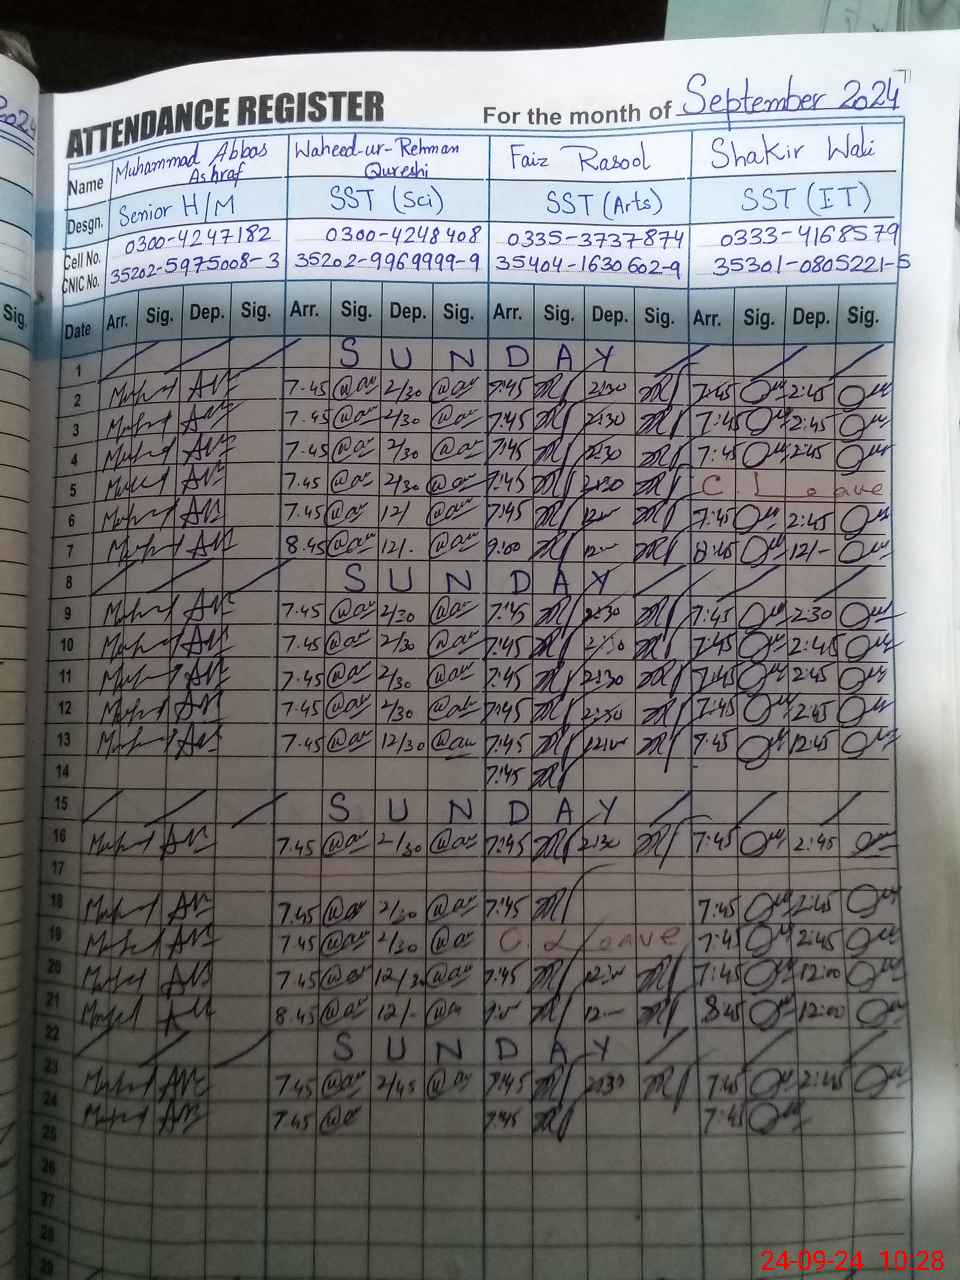 ATTENDANCE REGISTER For the month of September 2024
Name Muhammad Abbas Ashraf Waheed-ur-Rehman Qureshi Faiz Rasool Shakir Wali
Desgn. Senior H/M SST (Sci) SST (Arts) SST (IT)
Cell No. 0300-4247182 0300-4248408 0335-3737874 0333-4168579
CNIC No. 35202-5975008-3 35202-9969999-9 35404-1630602-9 35301-0805221-5
Sig. Date Arr. Sig. Dep. Sig. Arr. Sig. Dep. Sig. Arr. Sig. Dep. Sig. Arr. Sig. Dep. Sig.
1 SUNDAY
2 7.45 2/30 7:45 2:30 7:45 2:45
3 7.45 2/30 7:45 2:30 7:45 2:45
4 7.45 2/30 7:45 2:30 7:45 2:45
5 7.45 2/30 7:45 2:30 C. Leave
6 7.45 12/ 7:45 7:45 2:45
7 8.45 12/. 9:00 8:45 12/-
8 SUNDAY
9 7.45 2/30 7:45 2:30 7:45 2:30
10 7.45 2/30 7:45 2:30 7:45 2:45
11 7.45 2/30 7:45 2:30 7:45 2:45
12 7.45 2/30 7:45 2:30 7:45 2:45
13 7.45 12/30 7:45 7:45 12:45
14 7:45
15 SUNDAY
16 7.45 2/30 7:45 2:30 7:45 2:45
17
18 7.45 2/30 7:45 7:45 2:45
19 7.45 2/30 C. Leave 7:45 2:45
20 7.45 12/30 7:45 7:45 12:00
21 8.45 12/- 8:45 12:00
22 SUNDAY
23 7.45 2/45 7:45 2:30 7:45 2:45
24 7.45 7:45 7:45
25
26
27
28
29
24-09-24 10:28